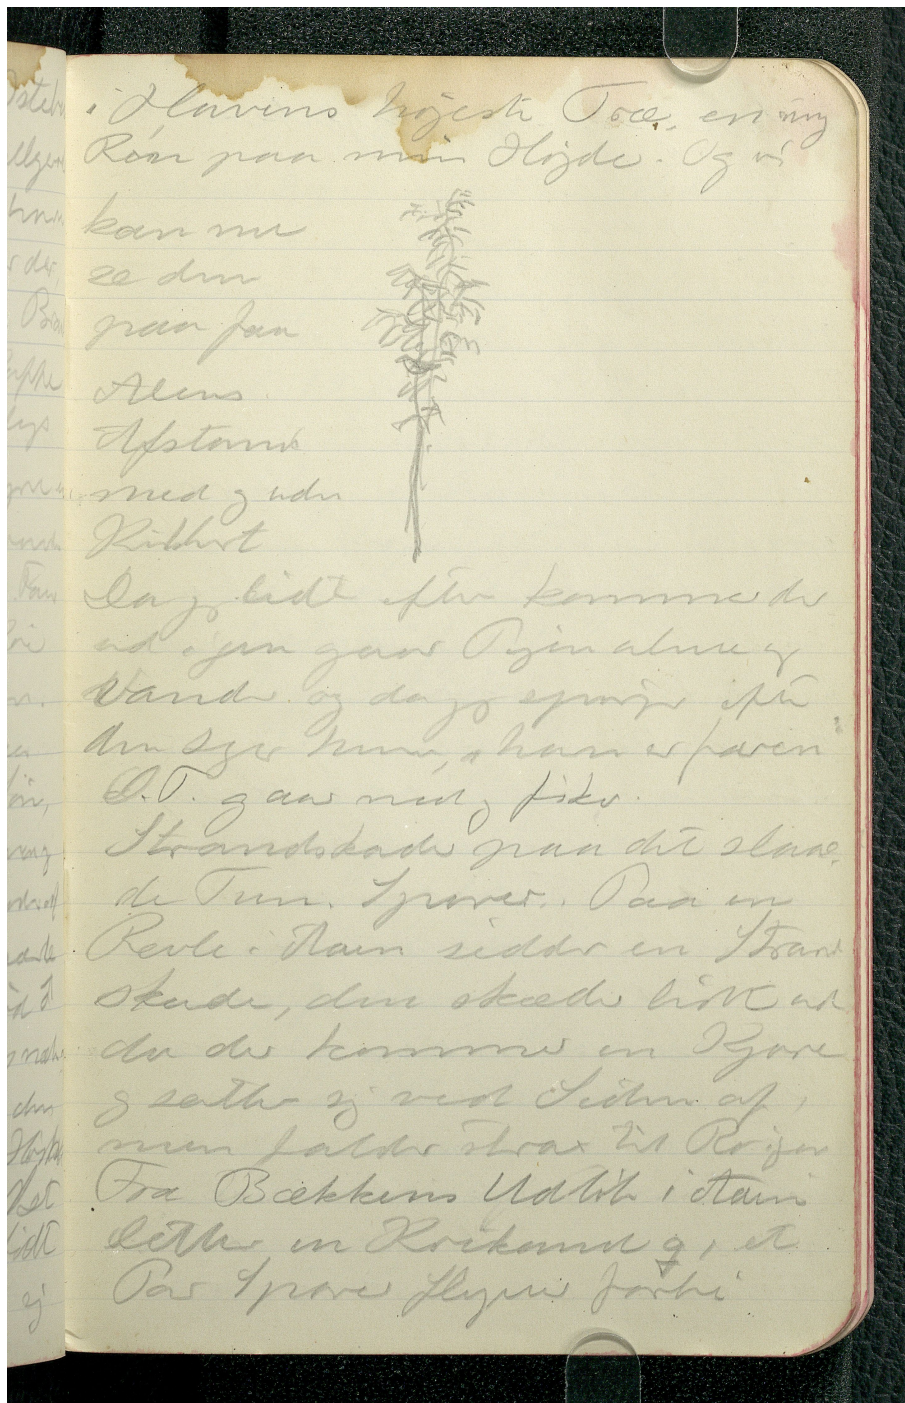 i Havens højeste Træ, en ung
Røn paa min Højde. Og vi
kan nu
se den
paa faa
Alens
Afstand
med og uden
Kikkert
Da jeg lidt efter kommer der
ud igen gaar Pigen alene og
vander og da jeg spørger efter
den siger hun, han er faren
O.T. gaar ned og fisker.
Strandskader paa det slaae-
de Tun. Sporer. Paa en
Revle i Aaen sidder en Strand
skade, den skæder lidt ud
da der kommer en Kjove
og sætter sig ved Siden af,
men falder strax til Ro igen
Fra Bækkens Udløb i Aaen
letter en Krikand og et
Par Sporer flyver forbi